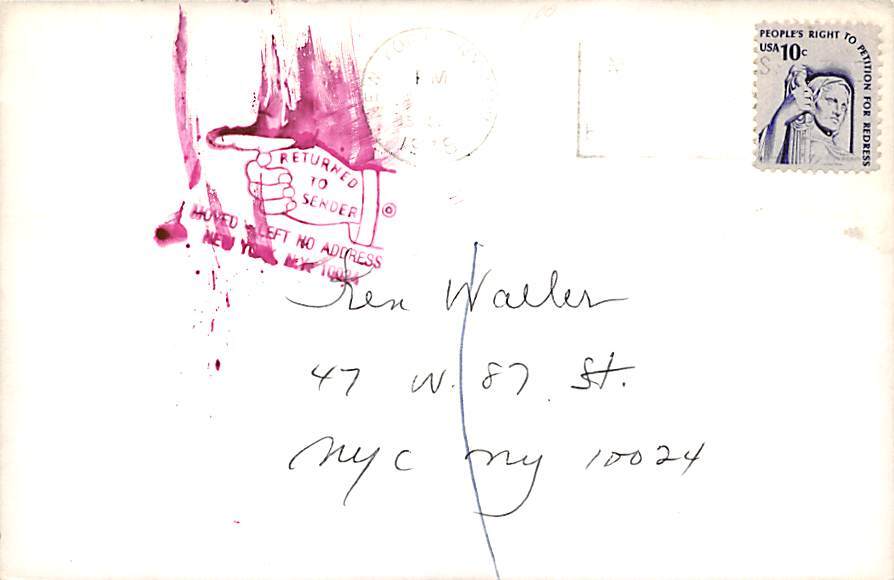 PEOPLE'S RIGHT TO PETITION FOR REDRESS
USA 10c
PM
RETURNED
TO
SENDER
MOVED LEFT NO ADDRESS
NEW YORK N.Y. 10024
Waller
47 W. 87 St.
NYC NY 10024